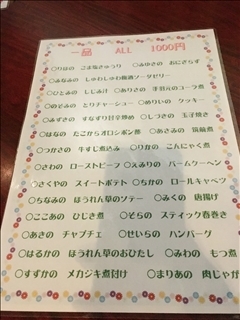 一品 ALL 1000円
○りなの ごま塩きゅうり ○みゆきの おにぎらず
○みなみの しゅわしゅわ梅酒ソーダゼリー
○ひとみの しじみ汁 ○ありさの 手羽元のコーラ煮
○のぞみの とりチャーシュー ○めりいの クッキー
○みずきの すずなり甘辛炒め ○しづきの 玉子焼き
○はなの たこからオロシポン酢 ○あさみの 筑前煮
○つかさの 牛すじ煮込み ○りかの こんにゃく煮
○さわの ローストビーフ ○えみりの バームクーヘン
○さくやの スイートポテト ○ちかの ロールキャベツ
○ちなみの ほうれん草のソテー ○みくの 唐揚げ
○ここあの ひじき煮 ○そらの スティック春巻き
○あきの チャプチェ ○せいらの ハンバーグ
○はるかの ほうれん草のおひたし ○みわの もつ煮
○すずかの メカジキ煮付け ○まりあの 肉じゃが